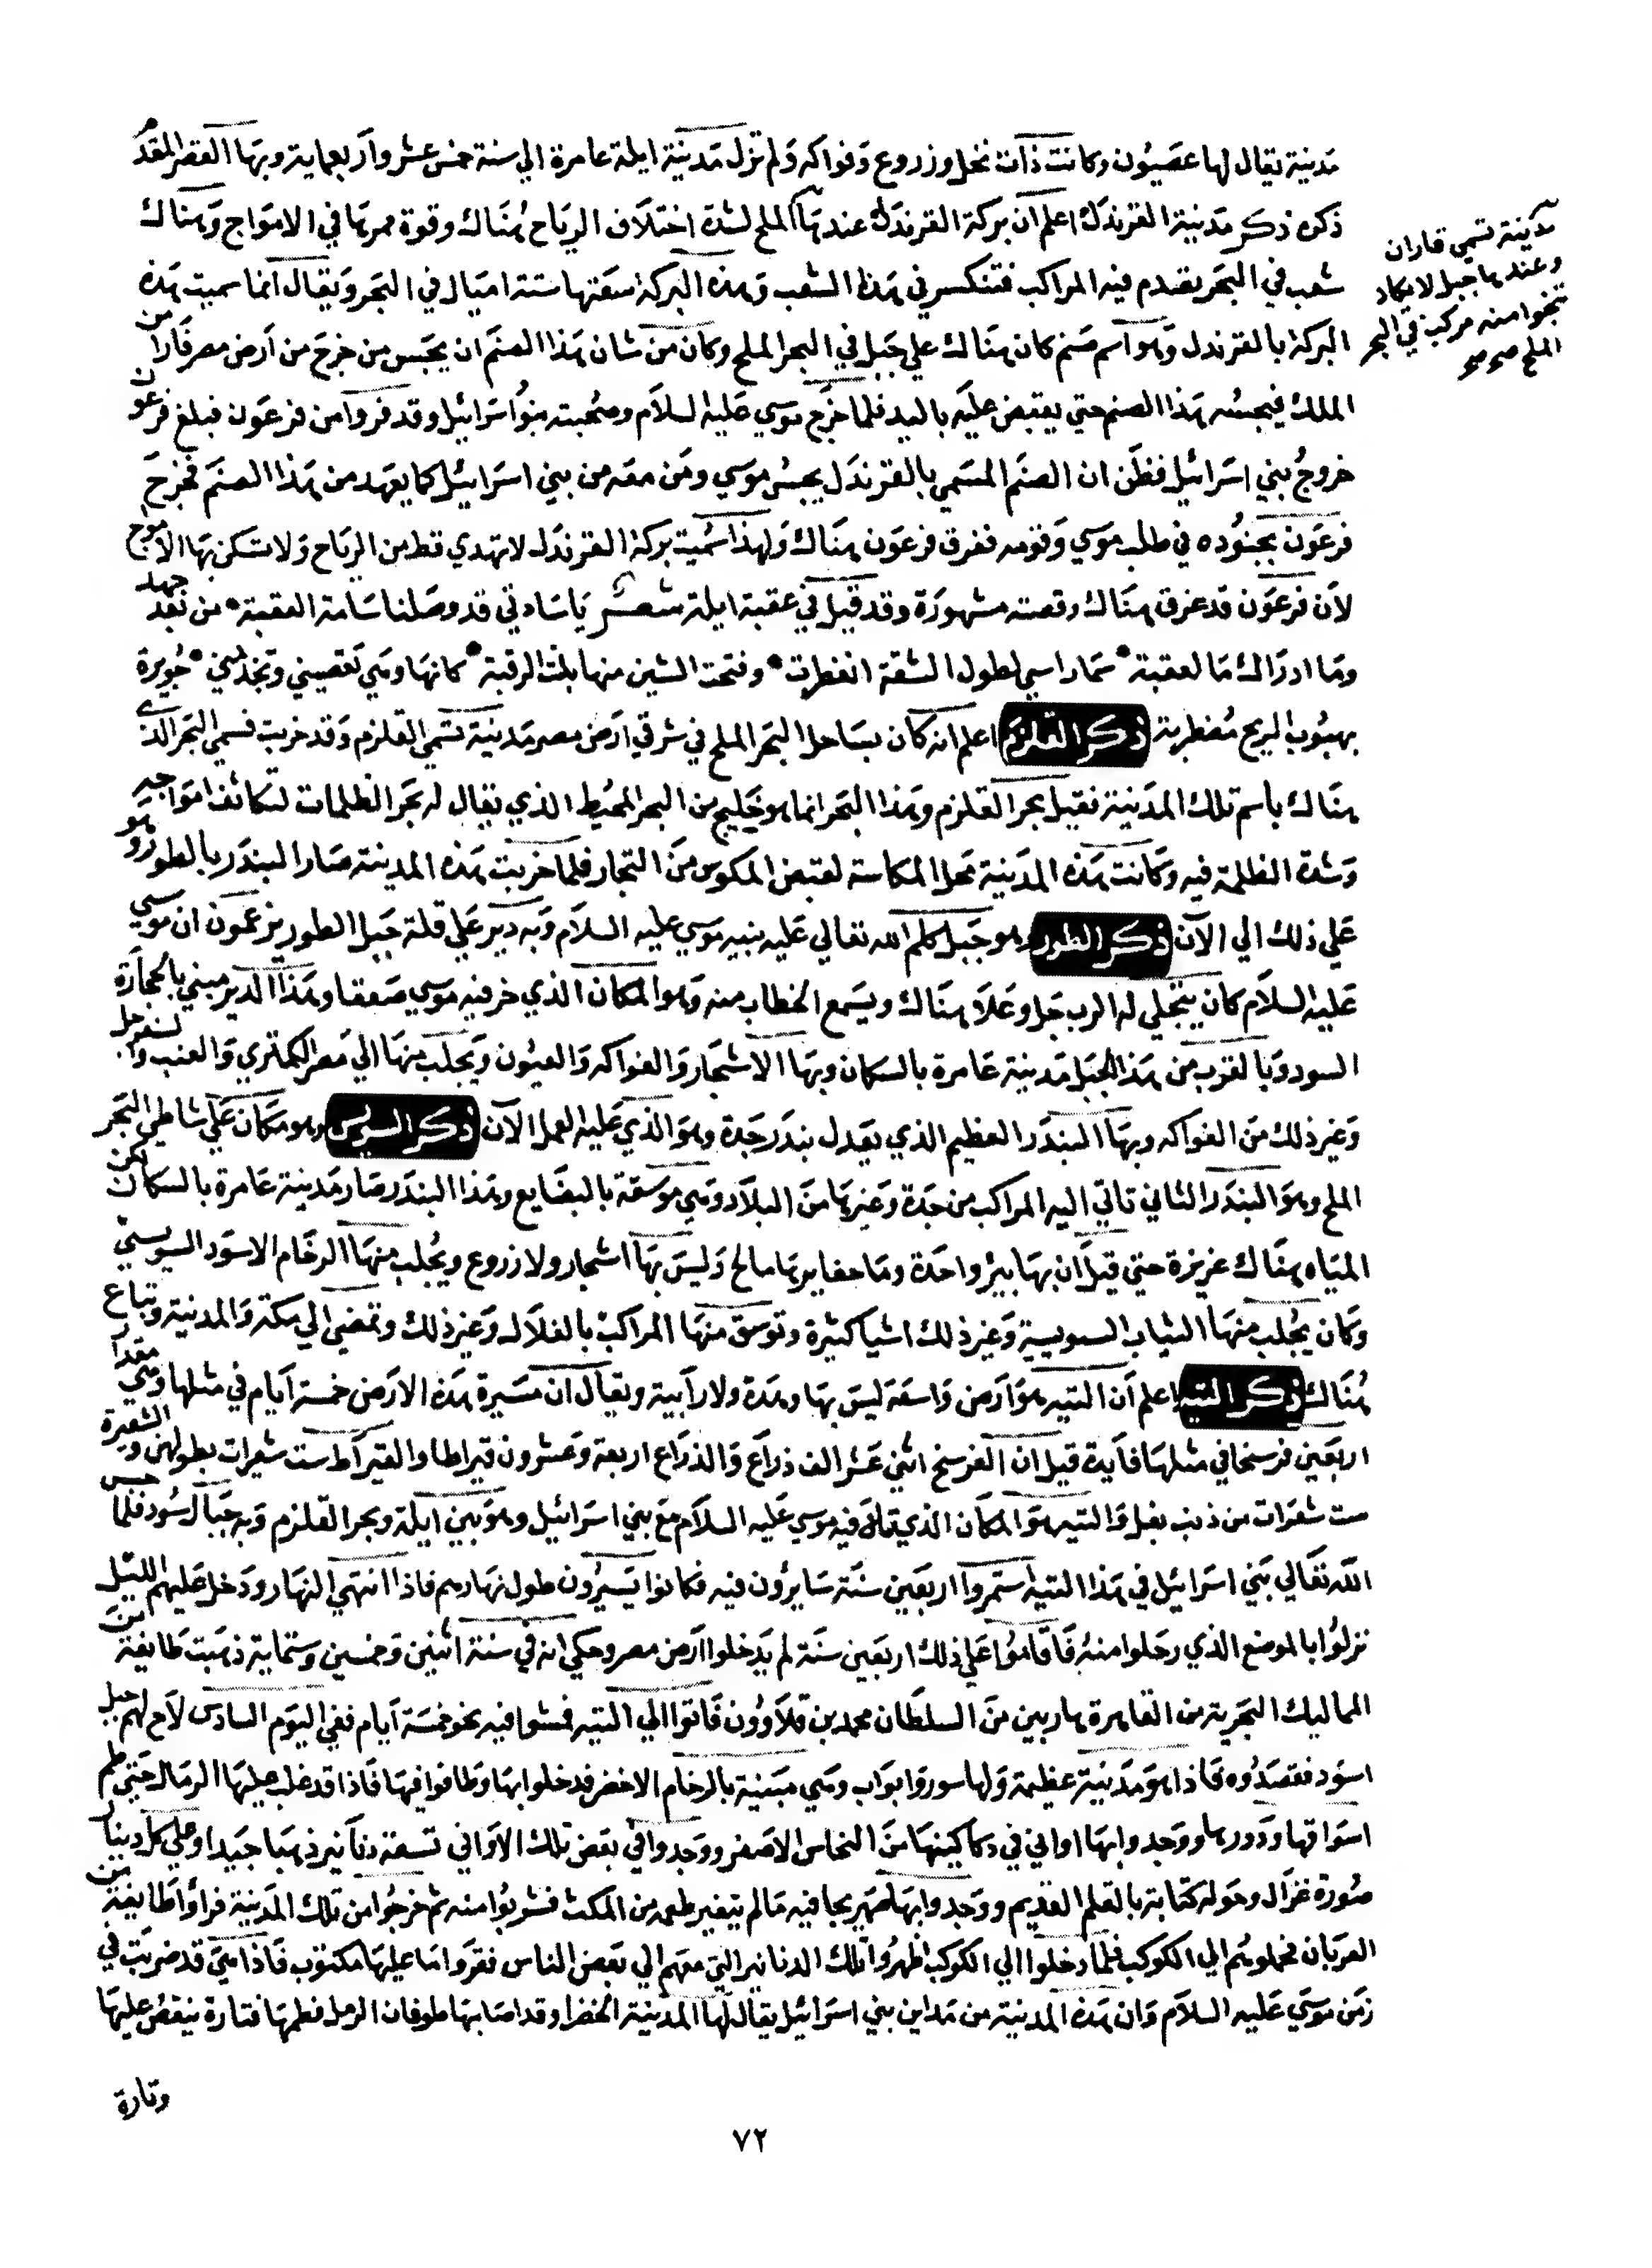 مدينة يقال لها عصيون وكانت ذات نخل وزروع وفواكه ولم تزل مدينة ايلة عامرة الي سنة خمس عشر واربعماية وبها القصر المقدم
ذكره ذكر مدينة القرندل اعلم ان بركة القرندل عندها الملح لشدة اختلاف الرياح هناك وقوة ممرها في الامواج وهناك
شعب في البحر يقدم فيه المراكب فتنكسر في هذا الشعب وهذه البركة سعتها ستة اميال في البحر ويقال انما سميت هذه
البركة بالقرندل وهو اسم صنم كان هناك علي جبل في البحر الملح وكان من شان هذا الصنم ان يحبس من خرج من ارض مصر فارا من
الملك فيحبسه هذا الصنم حتي يقبض عليه باليد فلما خرج موسي عليه السلام وصحبته بنوا اسرائيل وقد فروا من فرعون فبلغ فرعون
خروج بني اسرائيل فظن ان الصنم المسمي بالقرندل يحبس موسي ومن معه من بني اسرائيل كما يعهد من هذا الصنم فخرج
فرعون بجنوده في طلب موسي وقومه فغرق فرعون هناك ولهذا سميت بركة القرندل لا تهدي قط من الرياح ولا تسكن بها الامواج
لان فرعون قد غرق هناك وقصته مشهورة وقد قيل في عقبة ايلة شعر يا سادتي قد وصلنا سامة العقبة من بعد جهد
وما ادراك ما لعقبة سمار اسي لطول الشقة انفطرت وفتحت الشين منها بلت الرقبة كانها وهي تعصيني وتجذبني جويرة
بهبوب الريح مضطربة ذكر القلزم اعلم انه كان بساحل البحر الملح في شرقي ارض مصر مدينة تسمي القلزم وقد خربت فسمي البحر الذي
هناك باسم تلك المدينة فقيل بحر القلزم وهذا البحر انما هو خليج من البحر المحيط الذي يقال له بحر الظلمات لتكاثف امواجه
وشدة الظلمة فيه وكانت هذه المدينة محل المكاسة لقبض المكوس من التجار فلما خربت هذه المدينة صار البندر بالطور وهو
علي ذلك الي الآن ذكر الطور وهو جبل كلم الله تعالي عليه نبيه موسي عليه السلام وبه دير علي قلة جبل الطور يزعمون ان موسي
عليه السلام كان يتجلي له الرب جل وعلا هناك ويسمع الخطاب منه وهو المكان الذي خر فيه موسي صعقا وهذا الدير مبني بالحجارة
السود وبالقرب من هذا الجبل مدينة عامرة بالسكان وبها الاشجار والفواكه والعيون ويجلب منها الي مصر الكمثري والعنب والسفرجل
وغير ذلك من الفواكه وبها البندر العظيم الذي يعدل بندر جدة وهو الذي عليه العمل الآن ذكر السويس وهو مكان علي شاطي البحر
الملح وهو البندر الثاني تاتي اليه المراكب من جدة وغيرها من البلاد وهي موسقة بالبضايع وهذا البندر صار مدينة عامرة بالسكان لكن
المياه هناك عزيزة حتي قيل ان بها بير واحدة وما حفايرها مالح وليس بها اشجار ولا زروع ويجلب منها الرخام الاسود السويسي
وكان يجلب منها الثياب السويسية وغير ذلك اشيا كثيرة وتوسق منها المراكب بالغلال وغير ذلك وتمضي الي مكة والمدينة وتباع
هناك ذكر التيه اعلم ان التيه هو ارض واسعة ليس بها وهدة ولا رابية ويقال ان مسيرة هذه الارض خمسة ايام في مثلها وهي مقدار
اربعين فرسخا في مثلها فايدة قيل ان الفرسخ اثني عشر الف ذراع والذراع اربعة وعشرون قيراطا والقيراط ست شعيرات بطولهن والشعيرة
ست شعرات من ذنب بغل والتيه هو المكان الذي تاه فيه موسي عليه السلام مع بني اسرائيل وهو بين ايلة وبحر القلزم وبه جبال سود فلما حبس
الله تعالي بني اسرائيل في هذا التيه استمروا اربعين سنة سايرون فيه فكانوا يسيرون طول نهارهم فاذا انتهي النهار ودخل عليهم الليل
نزلوا بالموضع الذي رحلوا منه فاقاموا علي ذلك اربعين سنة لم يدخلوا ارض مصر وحكي انه في سنة اثنين وخمسين وستماية ذهبت طايفة من
المماليك البحرية من القاهرة هاربين من السلطان محمد بن قلاوون فاتوا الي التيه فمشوا فيه نحو خمسة ايام ففي اليوم السادس لاح لهم جبل
اسود فقصدوه فاذا هو مدينة عظيمة ولها سور وابواب وهي مبنية بالرخام الاخضر فدخلوا بها وطافوا فيها فاذا قد غلب عليها الرمال حتي طم
اسواقها ودورها ووجدوا بها اواني في دكاكينها من النحاس الاصفر ووجدوا في بعض تلك الاواني تسعة دنانير ذهبا جيدا وعلي كل دينار
صورة غزال وحوله كتابة بالقلم القديم ووجدوا بها صهريجا فيه ما لم يتغير طعمه من المكث فشربوا منه ثم خرجوا من تلك المدينة فراوا طايفة من
العربان فحملوهم الي الكوكب فلما دخلوا الي الكوكب اظهروا تلك الدنانير التي معهم الي بعض الناس فقروا ما عليها مكتوب فاذا هي قد ضربت في
زمن موسي عليه السلام وان هذه المدينة من مداين بني اسرائيل يقال لها المدينة الخضرا وقد اصابها طوفان الرمل فطمها فتارة ينقص عليها
وتارة
مدينة تسمي فاران
وعندها جبل لا يكاد
تنجوا منه مركب في البحر
الملح صح صح
٧٢